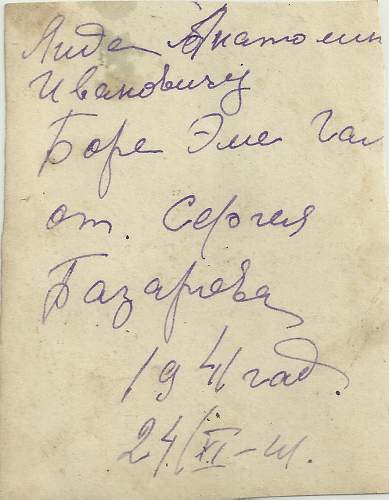 Анатолию
Ивановичу
Боре Эме Гал
от. Сергея
Базарова
1941 год.
24/VI-м.